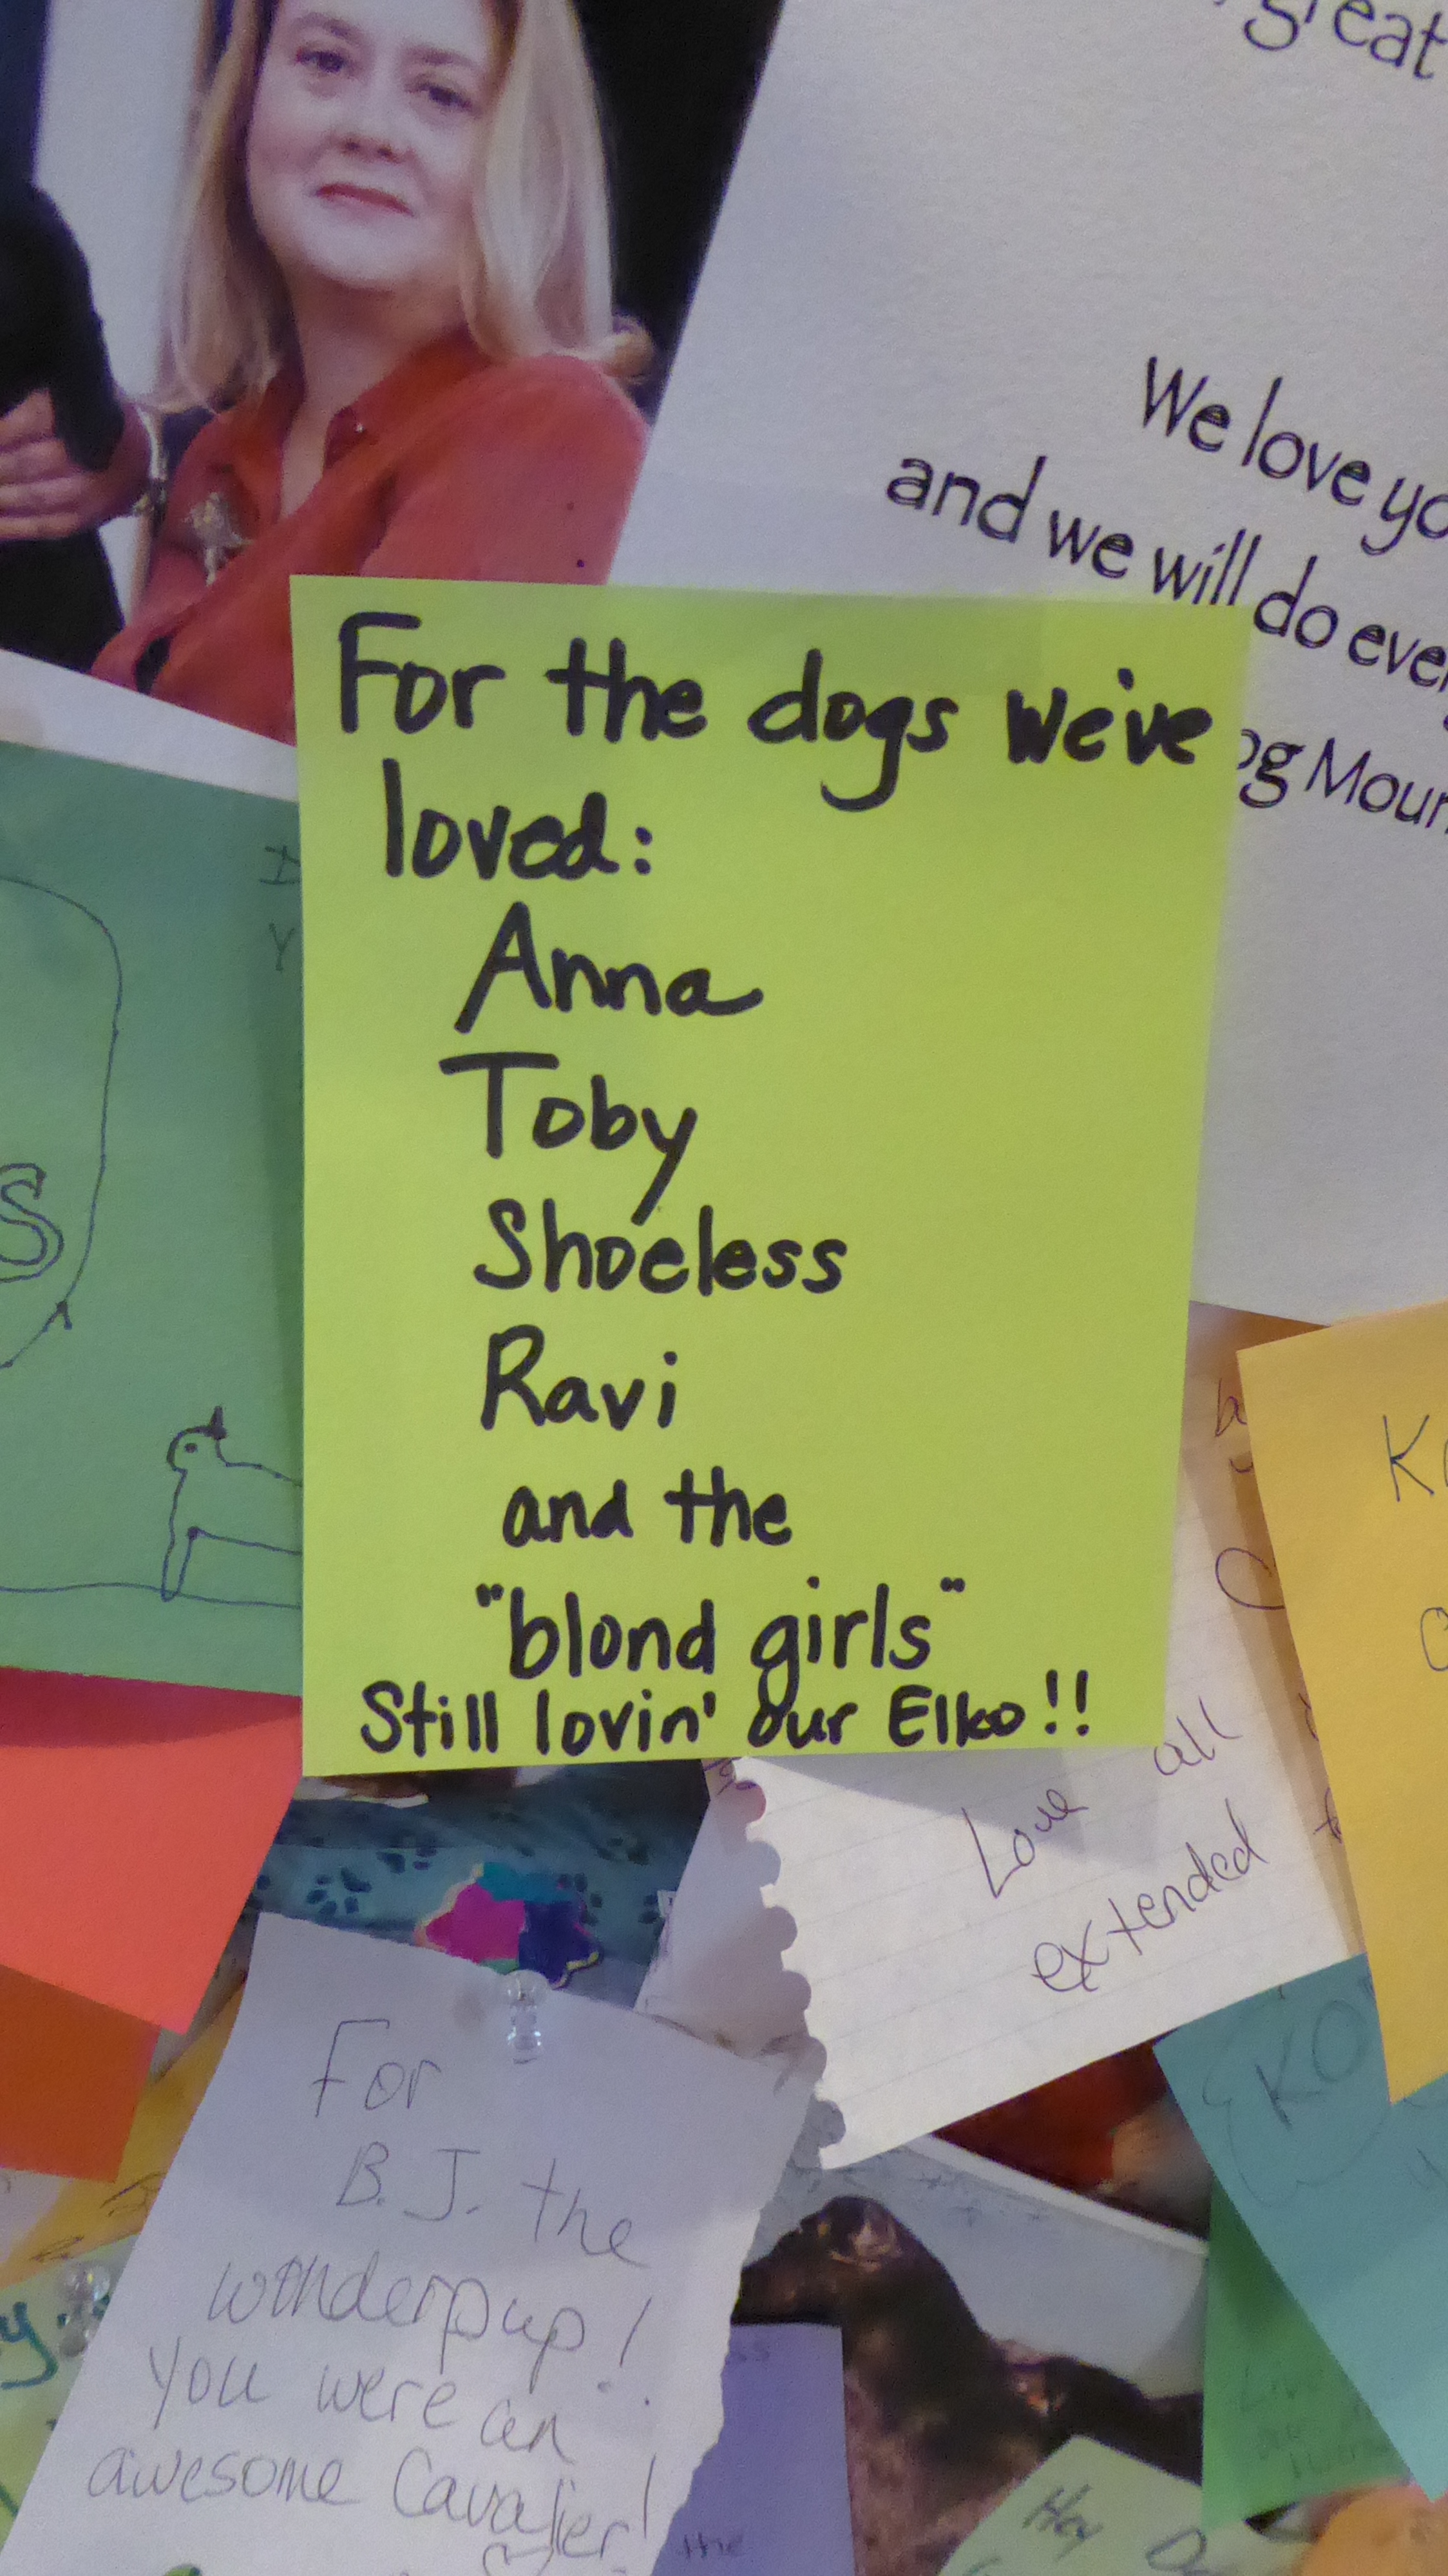 great
We love
and we will do
For the dogs we've
loved:
Anna
Toby
Shoeless
Ravi
and the
"blond girls"
Still lovin' our Elko!!
S
Love all
extended
For
B.J. the
wonderpup!
You were an
awesome Cavalier!
the
Hey